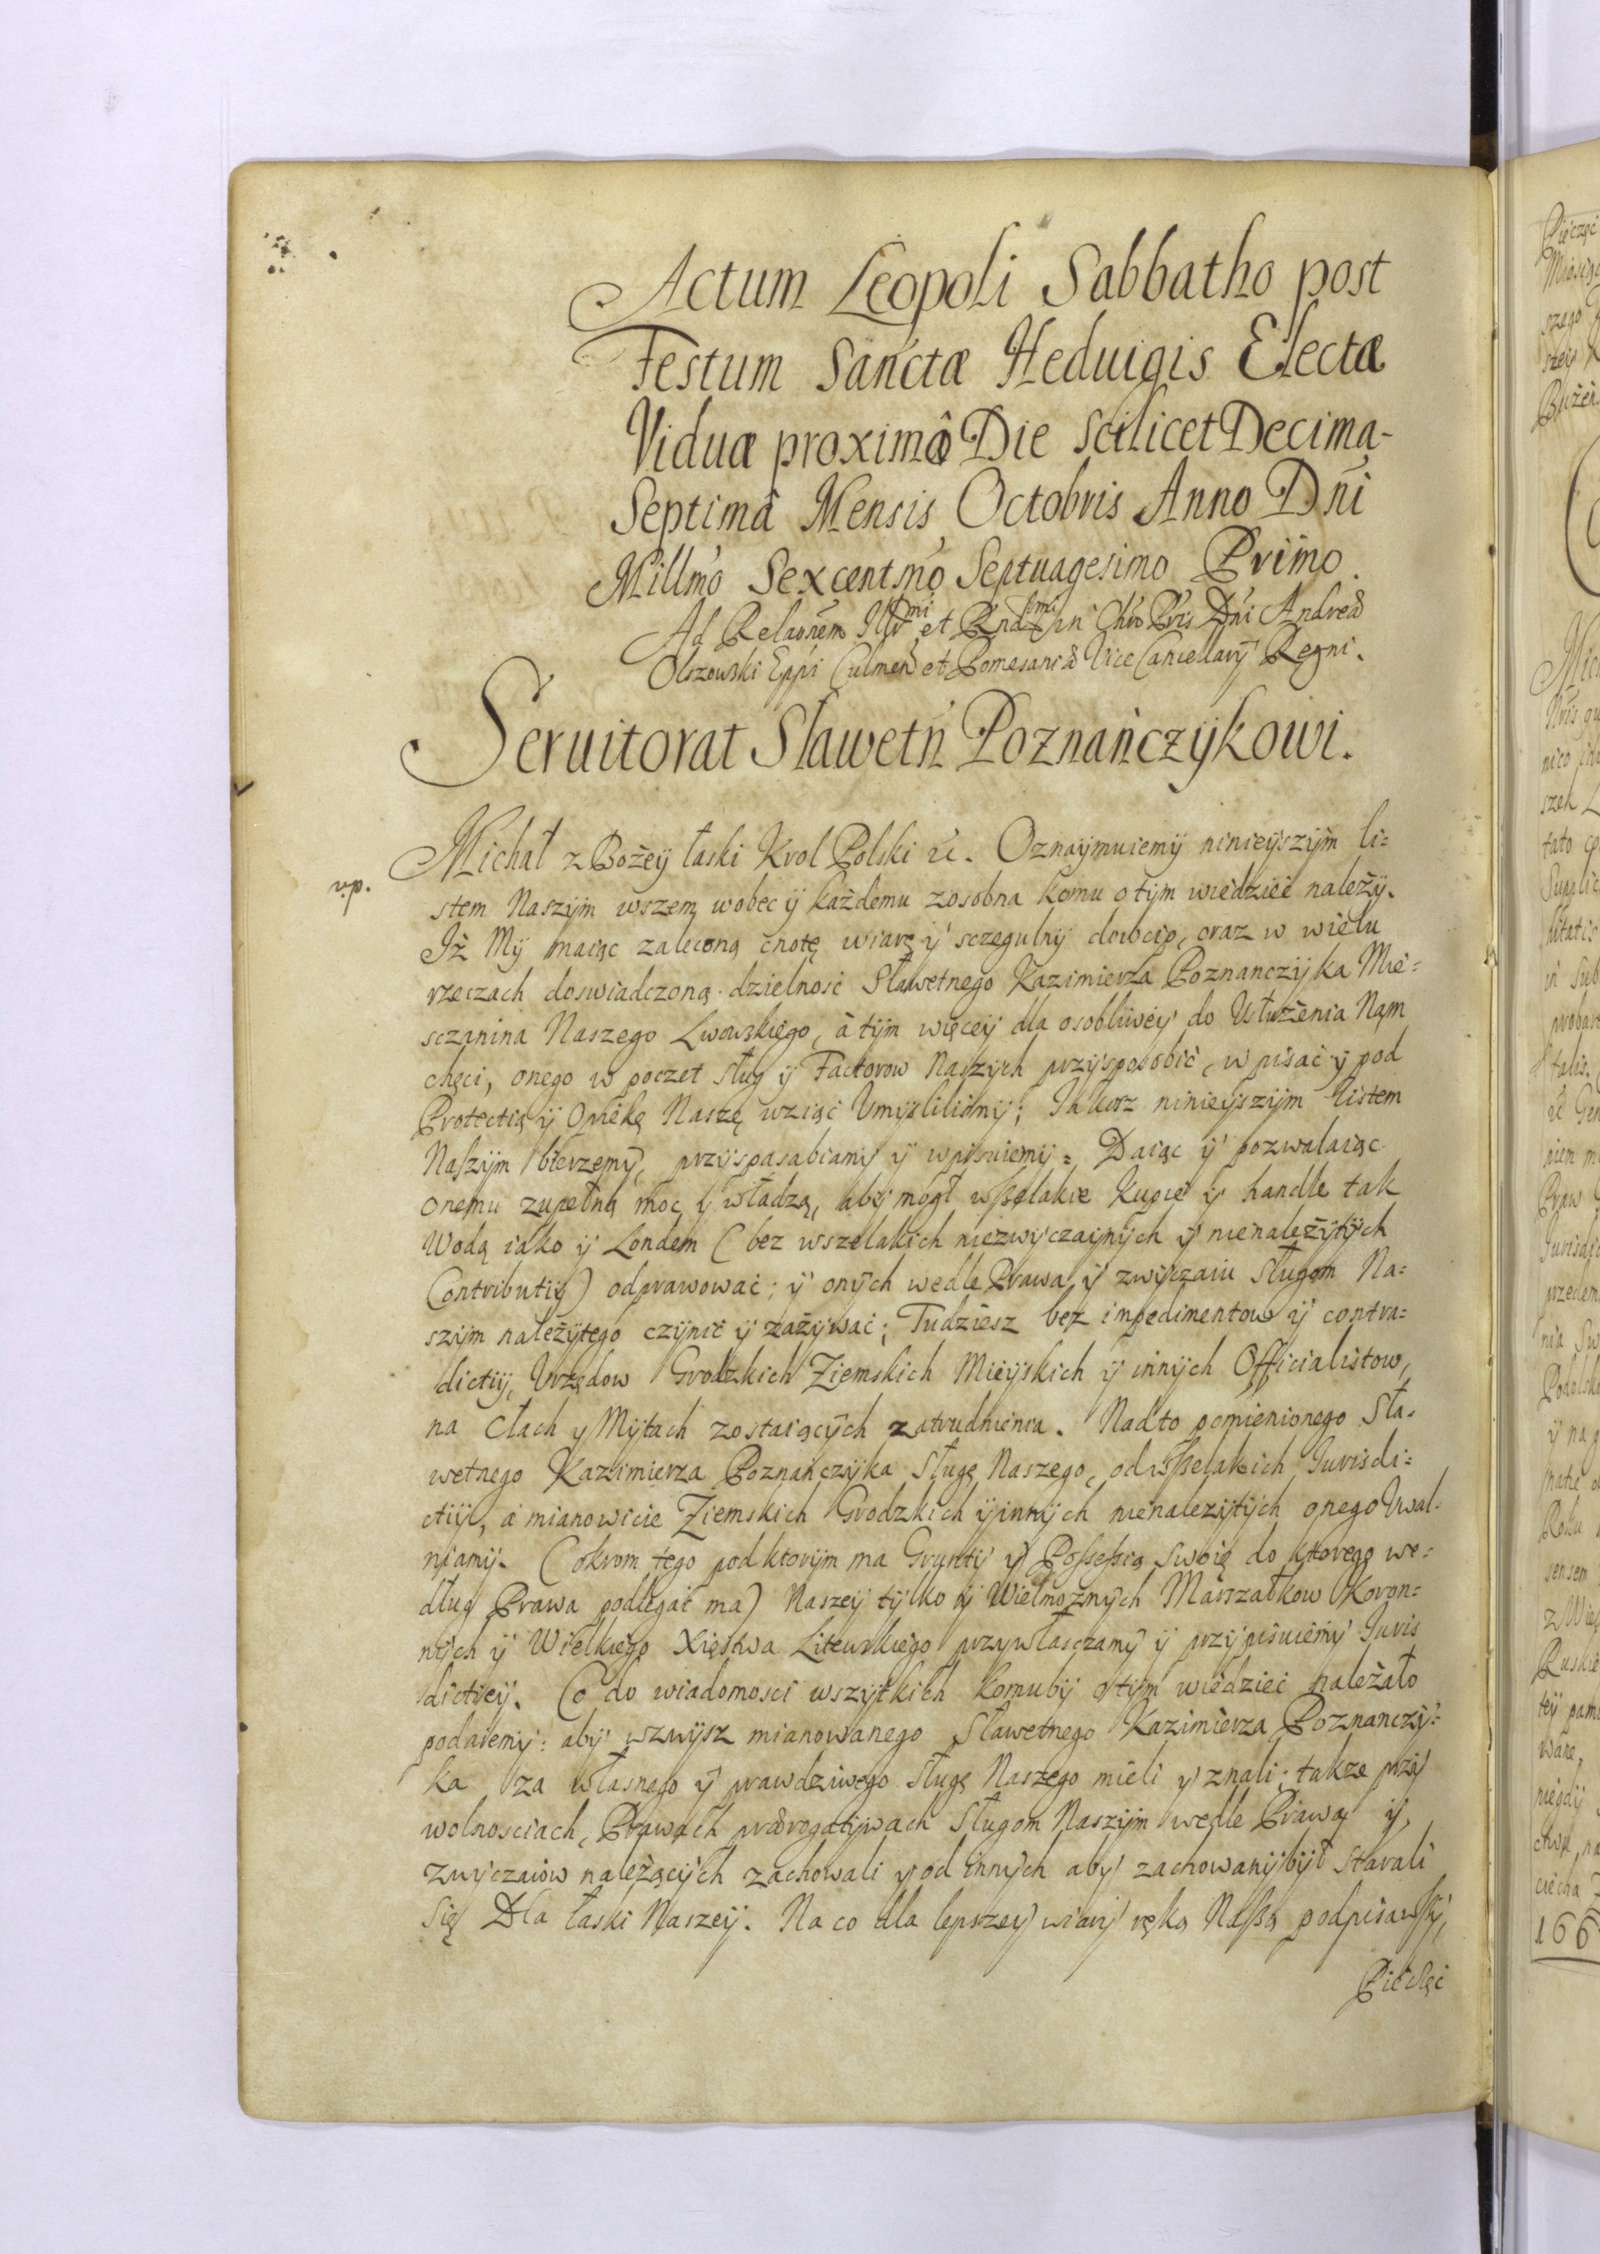 Actum Leopoli Sabbatho post
Festum Sanctæ Heduigis Electæ
Viduæ proximô Die scilicet Decima-
Septimâ Mensis Octobris Anno Dńi
Millmo Sexcentmo Septuagesimo Primo.
Ad Relaõnem Illrmi et Rndmi in Chro Pris Dni Andreæ
Olszowski Eppi Culmen et Pomesaniæ ViceCancellarÿ Regni.
Seruitorat Sławetń Poznańczÿkowi.
Michał z Bożeÿ łaski Krol Polski &c. Oznaÿmuiemÿ ninieÿszÿm li=
stem Naszÿm wszem wobec ÿ każdemu zosobna komu o tÿm wiedzieć należÿ.
Jż Mÿ maiąc zaleconą cnotę wiarę ÿ sczegulnÿ dowcip, oraz w wielu
rzeczach doswiadczoną dzielnosć Sławetnego Kazimierza Poznanczÿka Mie=
sczanina Naszego Lwowskiego, à tÿm więceÿ dla osobliweÿ do Usłużenia Nam
chęci, onego w poczet sług ÿ Factorow Naszÿch przÿsposobić, wpisać ÿ pod
Protectią ÿ Opiekę Naszę wziąć Umÿslilismÿ; Jakosz ninieÿszÿm listem
Naszÿm bierzemÿ, przÿspasabiamÿ ÿ wpisuiemÿ = Daiąc ÿ pozwalaiąc
onemu zupełną moc ÿ władzą, abÿ mógł wszelakie Kupie ÿ handle tak
Wodą iako ÿ Londem (bez wszelakich niezwÿczaÿnÿch ÿ nienależÿtÿch
Contributiÿ) odprawować; ÿ onÿch wedle Prawa ÿ zwÿczaiu sługom Na=
szÿm należÿtego czÿnić ÿ zażÿwać; Tudziesz bez impedimentow ÿ contra=
dictiÿ, Urzędow Grodzkich Ziemskich Mieÿskich ÿ innÿch Officialistow,
na Cłach y Mÿtach zostaiącÿch zatrudnienia. Nadto pomienionego Sła-
wetnego Kazimierza Poznanczÿka Sługę Naszego, od wszelakich Jurisdi=
ctiÿ, á mianowicie Ziemskich Grodzkich ÿ innÿch nienależÿtÿch onego Uwal-
niamÿ. (okrom tego pod ktorÿm ma Gruntÿ ÿ Possessią swoię do ktorego we=
dług Prawa podlegać ma) Naszeÿ tÿlko ÿ Wielmożnÿch Marszałkow Koron=
nÿch ÿ Wielkiego Xięstwa Litewskiego przÿwłasczamÿ ÿ przÿpisuiemÿ Juris
dictieÿ. Co do wiadomosci wszÿtkich komubÿ o tÿm wiedzieć należało
podaiemÿ: abÿ wzwÿsz mianowanego Sławetnego Kazimierza Poznanczÿ=
ka za własnego ÿ prawdziwego sługę Naszego mieli ÿ znali; także przÿ
wolnosciach, Prawach prærogatÿwach Sługom Naszÿm wedle Prawa ÿ
zwÿczaiów należącÿch zachowali ÿ od innÿch abÿ zachowanÿ bÿł starali
się Dla łaski Naszeÿ. Na co dla lepszeÿ wiarÿ ręką Naszą podpisawszÿ,
Pieczęć